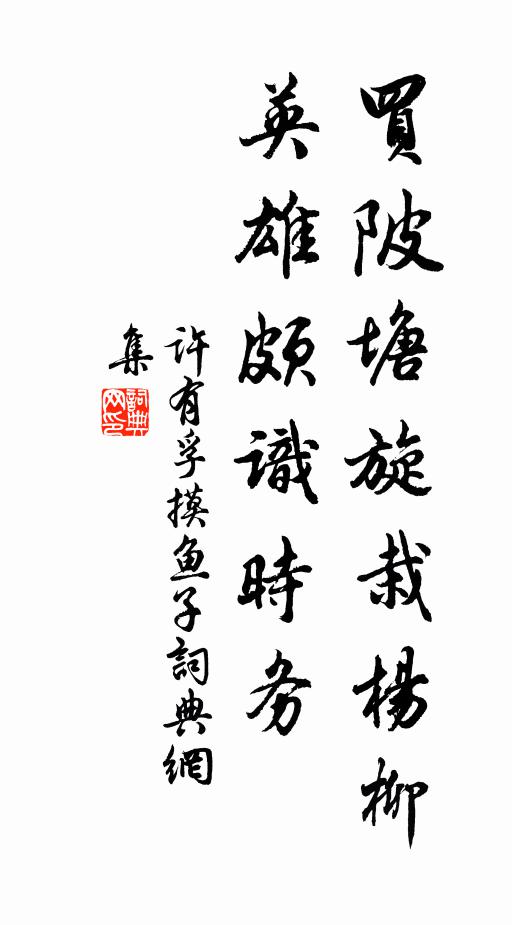 買陂塘旋栽楊柳
英雄頗識時务
许有孚摸鱼子詞典網
集
詞典
网印